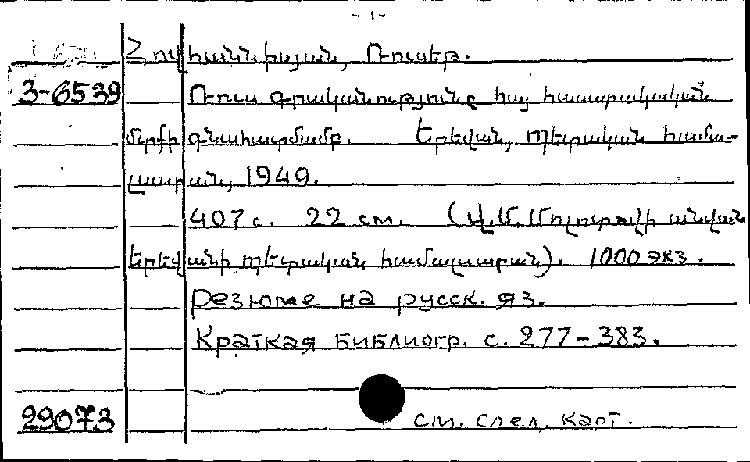 - 1 -
Հովհաննիսյան, Ռուսեթ.
3-6539 Ռուս գրականությունը հայ հասարակական
մտքի գնահատմամբ. Երևան, Պետական համա-
լսարան, 1949.
407 с. 22 см. (Վ. Մ. Մոլոտովի անվան
Երևանի պետական համալսարան). 1000 экз.
Резюме на русск. яз.
Краткая библиогр. с. 277-383.
29073 см. след. карт.